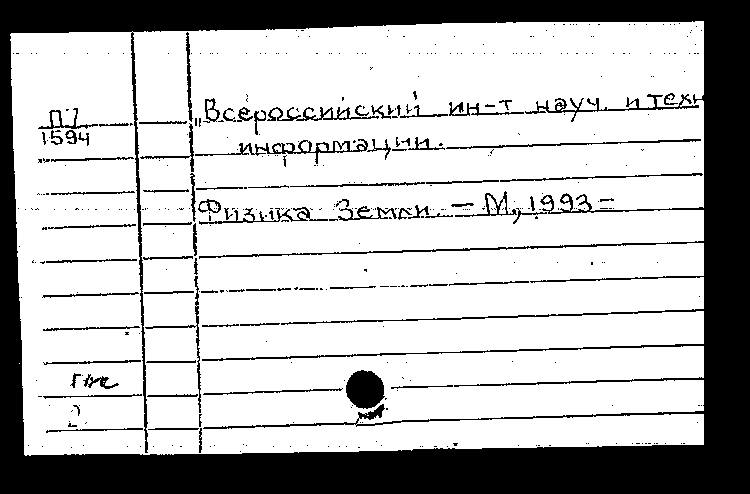 П7
1594
„Всероссийский ин-т науч. и техн
информации.
Физика Земли. – М, 1993 –
2